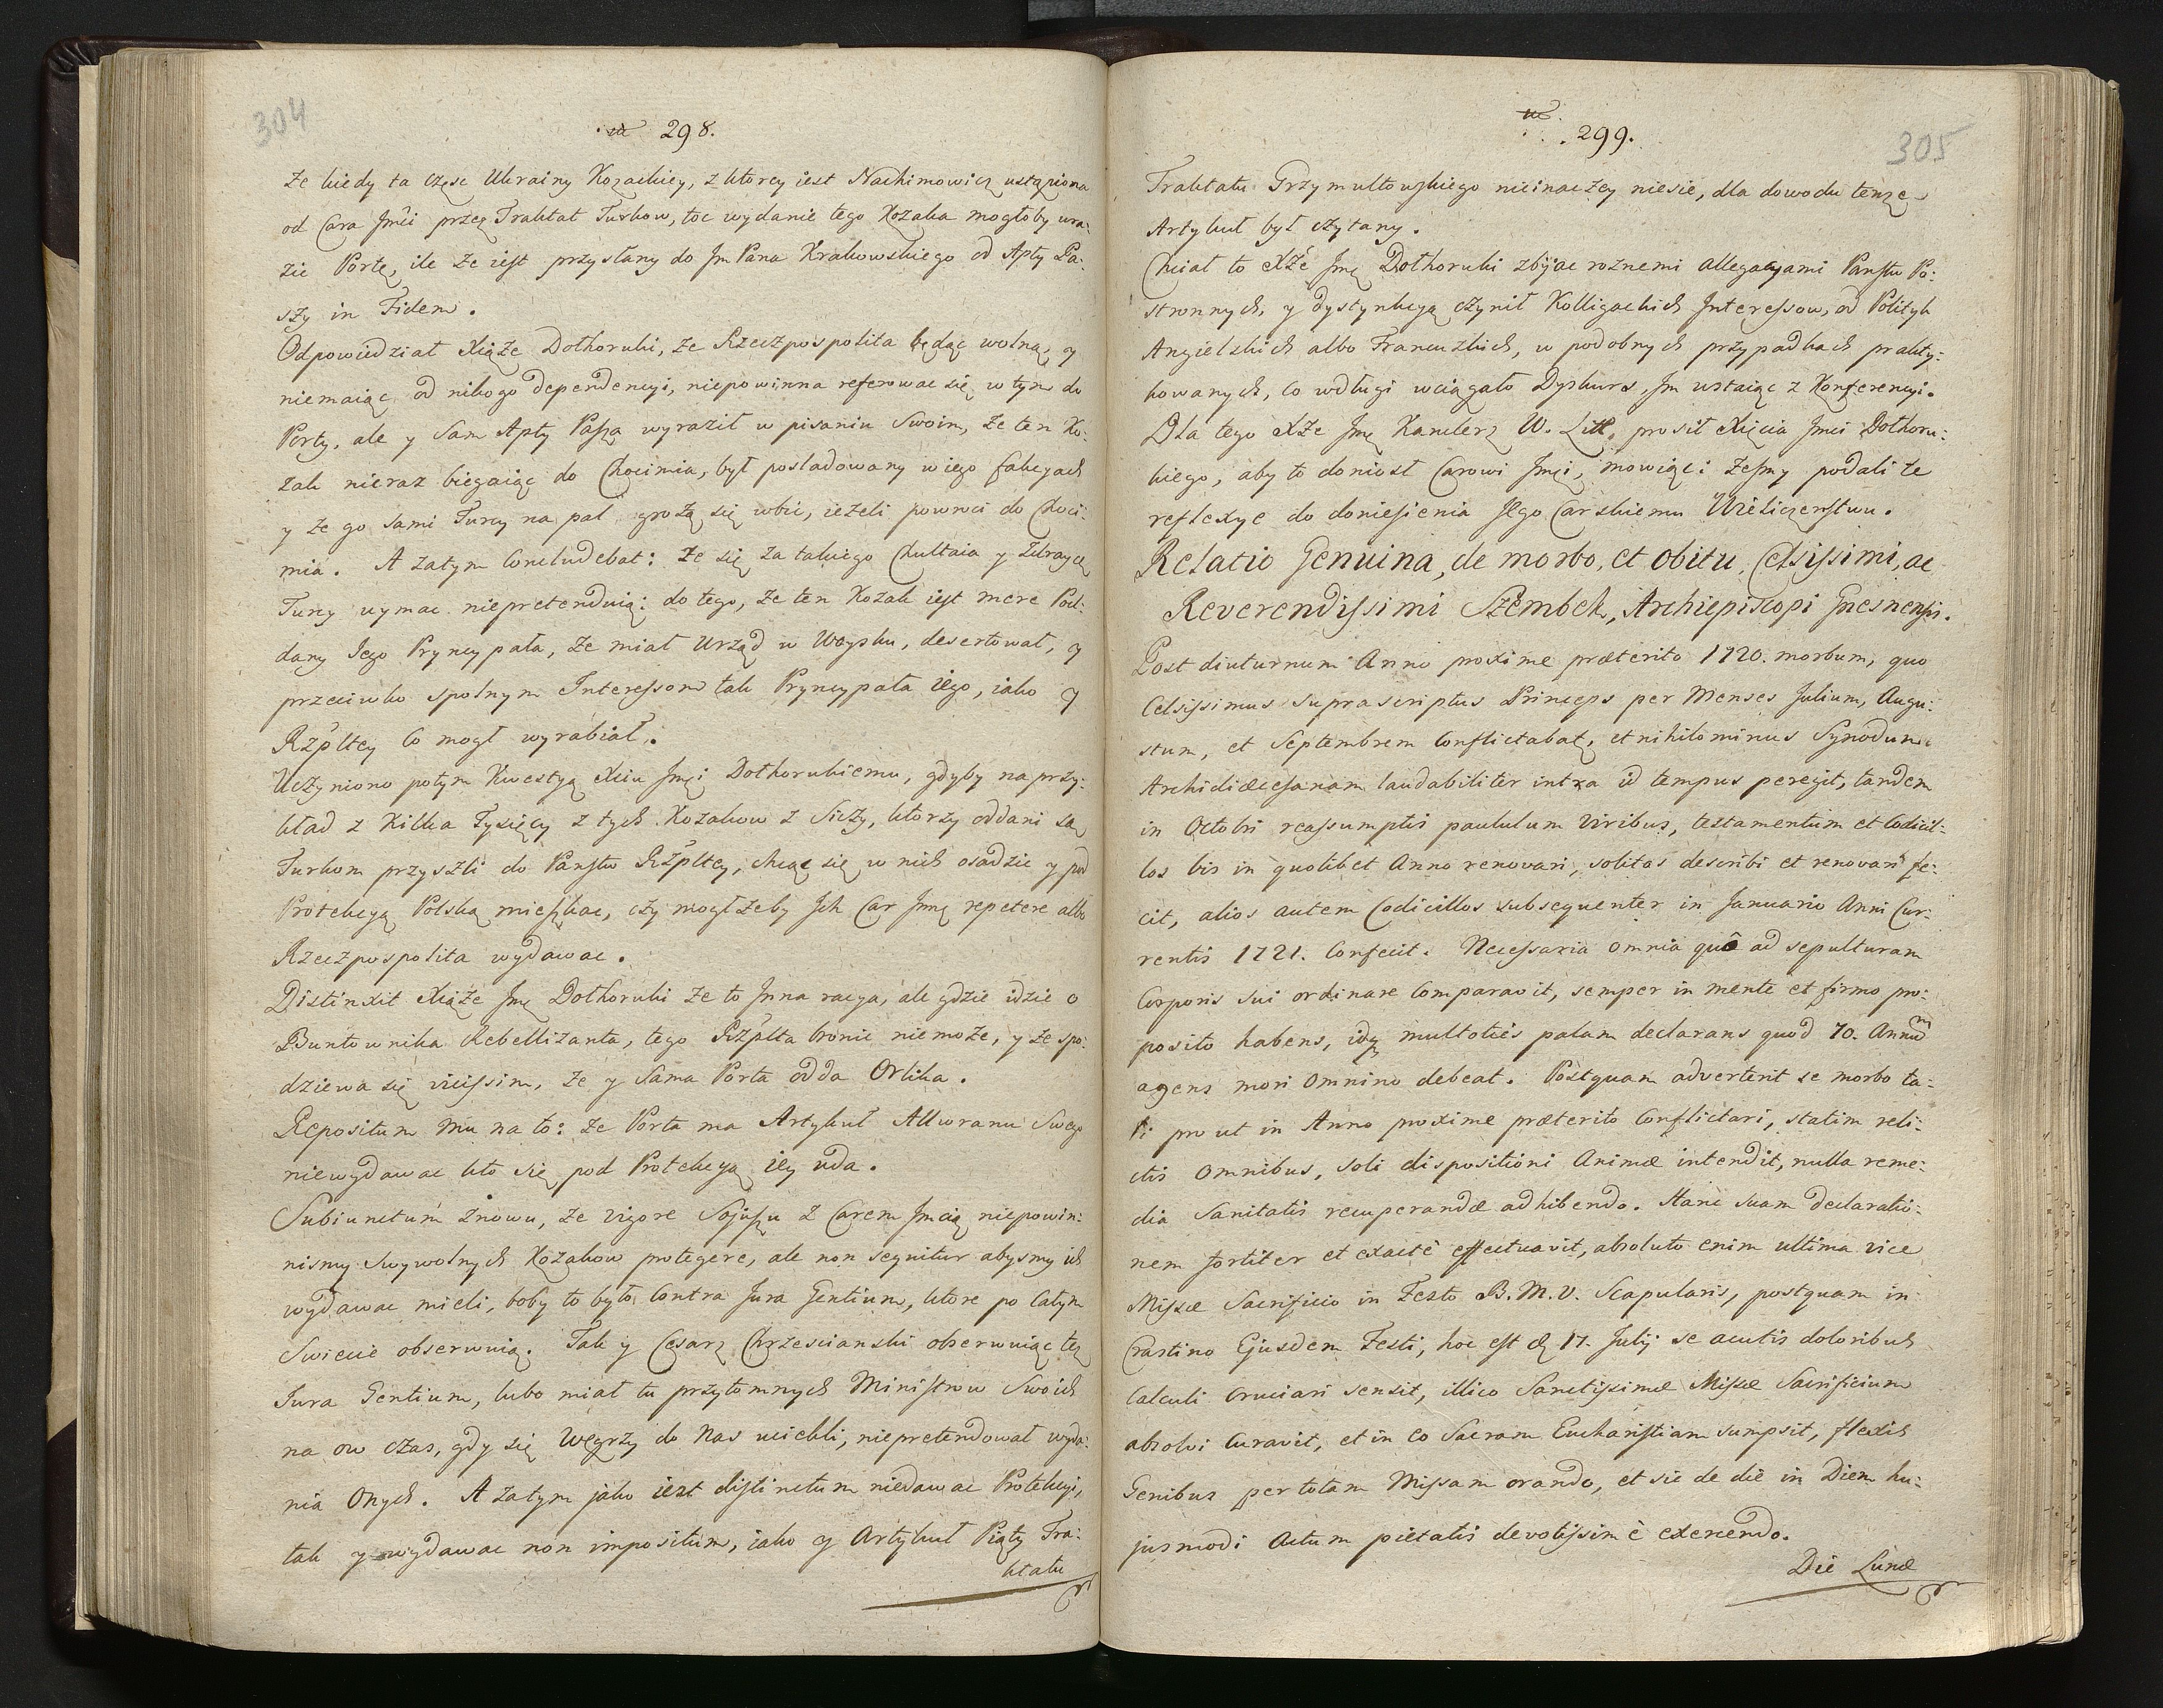 304
298.
że kiedy ta częsc Ukrainy Kozackiey, z ktorey iest Nachimowicz ustąpiona
od Cara Jmći przez Traktat Turkow, toc wydanie tego Kozaka mogłoby ura:
zic Portę, ile że iest przysłany do Jm Pana Krakowskiego od Apty Ba:
szy in Fidem.
Odpowiedział Xiąże Dołhoruki, że Rzeczpospolita będąc wolną y
niemaiąc od nikogo dependencyi, niepowinna referowac się w tym do
Porty, ale y Sam Apty Paszą wyraził w pisaniu Swoim, że ten Ko:
zak nieraz biegaiąc do Chocimia, był posladowany w iego fakcyach
y że go sami Turcy na pal grożą się wbic, ieżeli powroci do Choci:
mia. A zatym Concludebat: że się za takiego Chultaia y Zdraycę
Turcy uymac niepretenduią: do tego, że ten Kozak iest mere Pod:
dany Jego Pryncypała, że miał Urząd w Woysku, desertował, y
przeciwko spolnym Interessom tak Pryncypała iego, iako y
Rzpltey Co mogł wyrabiał.
Uczyniono potym Kwestyą Xciu Jmci Dołhorukiemu, gdyby na przy:
kład z Kilka Tysięcy z tych Kozakow z Siczy, ktorzy oddani są
Turkom przyszli do Panstw Rzpltey, chcąc się w nich osadzic y pod
Protekcyą Polską mieszkac, czy mogł żeby Jch Car Jmć repetere albo
Rzeczpospolita wydawac.
Distinxit Xiąże Jmć Dołhoruki że to Jnna racya, ale gdzie idzie o
Buntownika Rebellizanta, tego Rzplta bronic niemoże, y że spo:
dziewa się vicissim, że y Sama Porta odda Orlika.
Repositum mu na to: że Porta ma Artykuł Alkoranu Swego
niewydawac kto się pod Protekcyą iey uda.
Subiunctum znowu, że vigore Sojuszu z Carem Jmcią niepowin:
nismy Swywolnych Kozakow protegere, ale non sequitur abysmy ich
wydawac mieli, boby to było Contra Jura Gentium, ktore po Całym
Swiecie obserwuią. Tak y Cesarz Chrzescianski obserwuiąc też
Jura Gentium, lubo miał tu przytomnych Ministrow Swoich
na ow czas, gdy się Węgrzy do Nas uciekli, niepretendował wyda:
nia Onych. A zatym jako iest distinctum niedawac Protekcyi,
tak y wydawac non impositum, iako y Artykuł Piąty Tra:
ktatu
299.
305
Traktatu Grzymułtowskiego nieinaczey niesie, dla dowodu tenże
Artykuł był czytany.
Chciał to Xże Jmć Dołhoruki zbijac roznemi allegacyami Panstw Po:
stronnych, y dystynkcyą czynił Kolligackich Interessow, od Polityk
Angielskich albo Francuzkich, w podobnych przypadkach prakty:
kowanych, Co wdługi wciągało Dyskurs, Jm ustaiąc z Konferencyi.
Dla tego Xże Jmć Kanclerz W. Litt. prosił Xięcia Jmci Dołhoru:
kiego, aby to doniosł Carowi Jmci, mowiąc: żesmy podali te
reflexye do doniesienia Jego Carskiemu Wieliczenstwu.
Relatio Genuina, de morbo, et obitu, Celsissimi, ac
Reverendissimi Szembek, Archiepiscopi Gnesnensis.
Post diuturnum Anno proxime præterito 1720. morbum, quo
Celsissimus suprascriptus Princeps per Menses Julium, Augu:
stum, et Septembrem Conflictabat, et nihilominus Synodum
Archidiæcesanam laudabiliter intra id tempus peregit, tandem
in Octobri reassumptis paululum viribus, testamentum et Codicil:
los bis in quolibet Anno renovari, solitas describi et renovari fe:
cit, alios autem Codicillos subsequenter in Januario Anni Cur:
rentis 1721. Confecit. Necessaria omnia quæ ad sepulturam
Corporis sui ordinare Comparavit, semper in mente et firmo pro:
posito habens, idq multoties palam declarans quod 70. Annum
agens mori omnino debeat. Postquam adverterit se morbo ta:
li prout in Anno proxime præterito Conflictari, statim reli:
ctis omnibus, soli dispositioni Animæ intendit, nulla reme:
dia Sanitatis recuperandæ adhibendo. Hanc suam declaratio:
nem fortiter et exacte effectuavit, absoluto enim ultima vice
Missæ Sacrificio in Festo B. M. V. Scapularis, postquam in
Crastino Ejusdem Festi, hoc est 17. Julij se acutis doloribus
Calculi Cruciari sensit, illico Sanctissimæ Missæ Sacrificium
absolvi Curavit, et in eo Sacram Eucharistiam sumpsit, flexis
Genibus per totam Missam orando, et sic de die in Diem hu:
jusmodi Actum pietatis devotissimè exercendo.
Die Lunæ